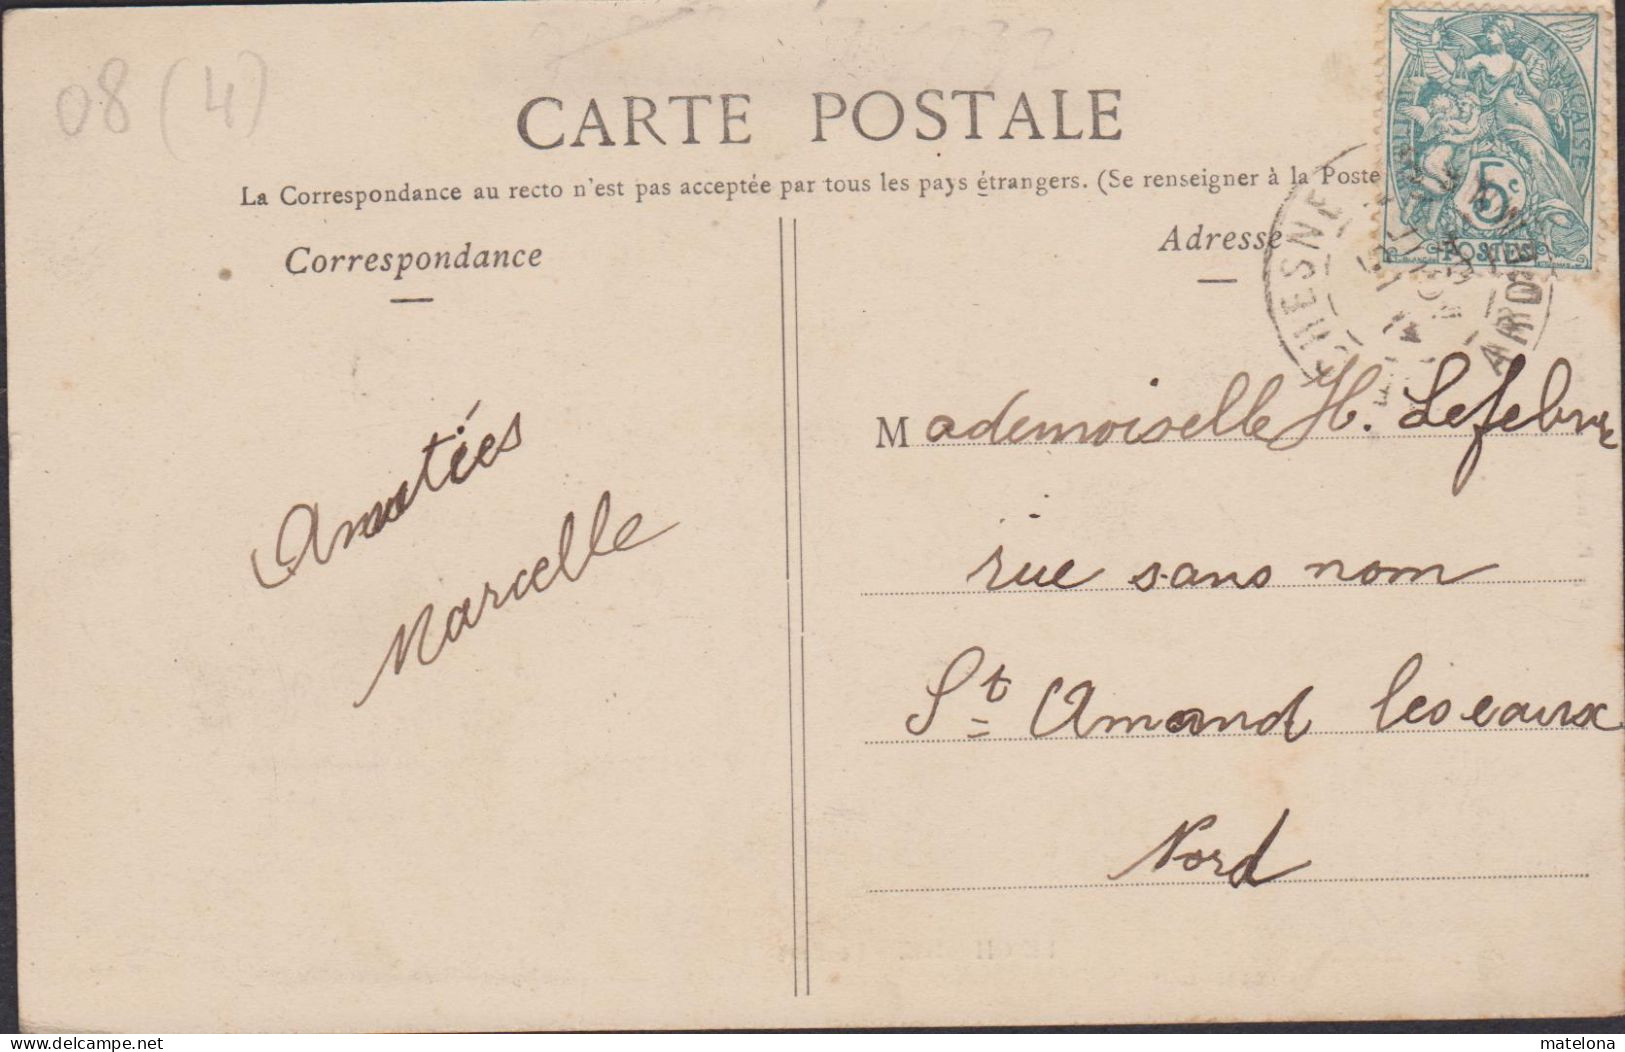 08 (4)
CARTE POSTALE
La Correspondance au recto n'est pas acceptée par tous les pays étrangers. (Se renseigner à la Poste
Correspondance
Adresse
RÉPUBLIQUE FRANÇAISE
5c
POSTES
CHESNE
ARDE
Amitiés
Marcelle
Mademoiselle H. Lefebvre
rue sans nom
St Amand les eaux
Nord
delcampe.net
matelona